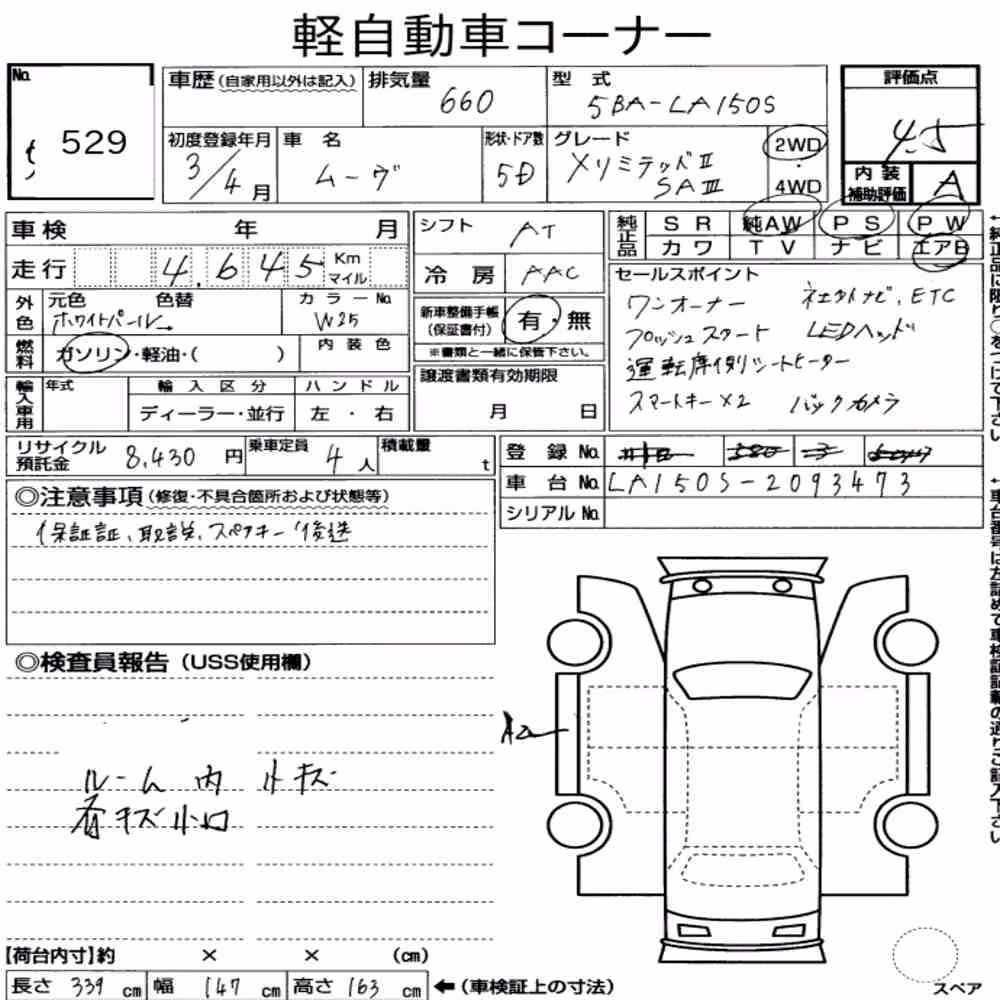 軽自動車コーナー
No. 529
車歴(自家用以外は記入) 排気量 660 型式 5BA-LA150S
初度登録年月 3/4月 車名 ムーヴ 形状・ドア数 5D グレード XリミテッドⅡ SAⅢ 2WD・4WD
評価点 4.5
内装補助評価 A
車検 年 月
走行 4,645 Km マイル
外色 元色 ホワイトパール 色替 カラーNo. W25
燃料 ガソリン・軽油・( ) 内装色
輸入車用 年式 輸入区分 ディーラー・並行 ハンドル 左・右
シフト AT
冷房 AAC
新車整備手帳(保証書付) 有・無
※書類と一緒に保管下さい。
譲渡書類有効期限 月 日
純正品 SR 純AW PS PW
カワ TV ナビ エアB
セールスポイント
ワンオーナー ネエタイナビ、ETC
プッシュスタート LEDヘッド
運転席側シートヒーター
スマートキー×2 バックカメラ
リサイクル預託金 8,430円 乗車定員 4人 積載量 t
登録No.
車台No. LA150S-2093473
シリアルNo.
◎注意事項(修復・不具合箇所および状態等)
保証証、取説、スペアキー後送
◎検査員報告(USS使用欄)
ルーム内 小キズ
看キズ小凹
A2
【荷台内寸】約 × × (cm)
長さ 339 cm 幅 147 cm 高さ 163 cm ←(車検証上の寸法)
スペア
←純正品に限り○をつけて下さい
←車台番号は左詰めで車検証記載の通りご記入下さい